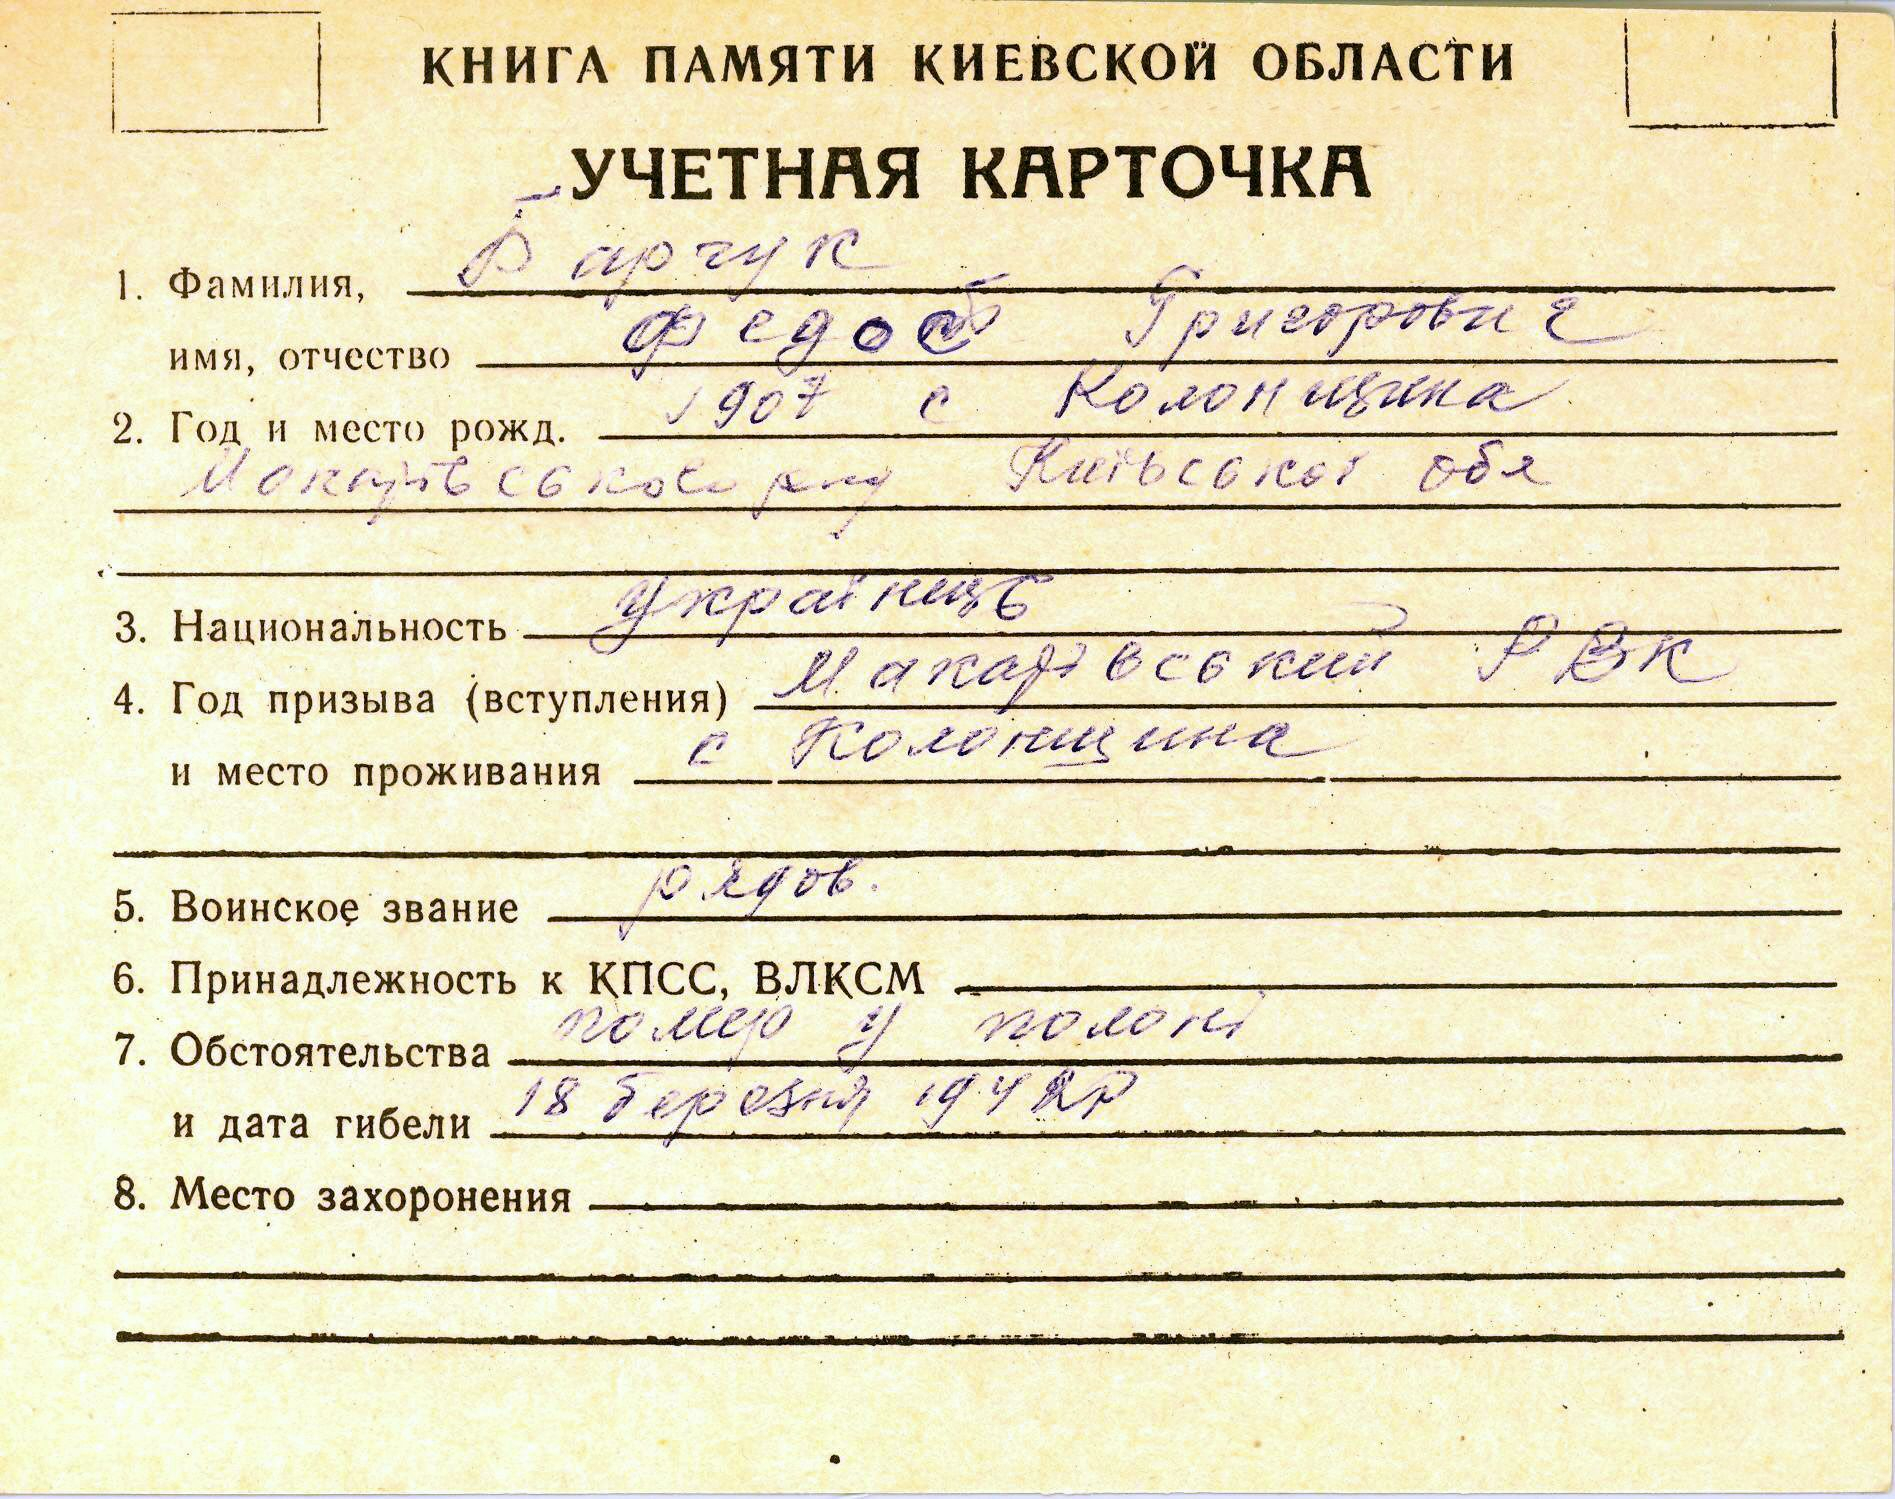 КНИГА ПАМЯТИ КИЕВСКОЙ ОБЛАСТИ
УЧЕТНАЯ КАРТОЧКА
1. Фамилия, Барчук
имя, отчество Федос Григорович
2. Год и место рожд. 1907 с Колонщина
Макарівського р-ну Київської обл
3. Национальность Українець
4. Год призыва (вступления) Макарівський РВК
и место проживания с Колонщина
5. Воинское звание рядов.
6. Принадлежность к КПСС, ВЛКСМ
7. Обстоятельства помер у полоні
и дата гибели 18 березня 1942р
8. Место захоронения